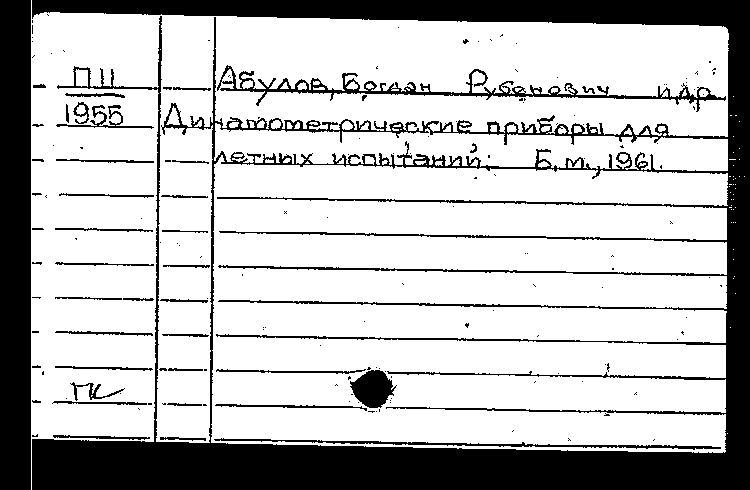 П11
1955
Абулов, Богдан Рубенович и др
Динамометрические приборы для
летных испытаний: Б.м., 1961.
ПК